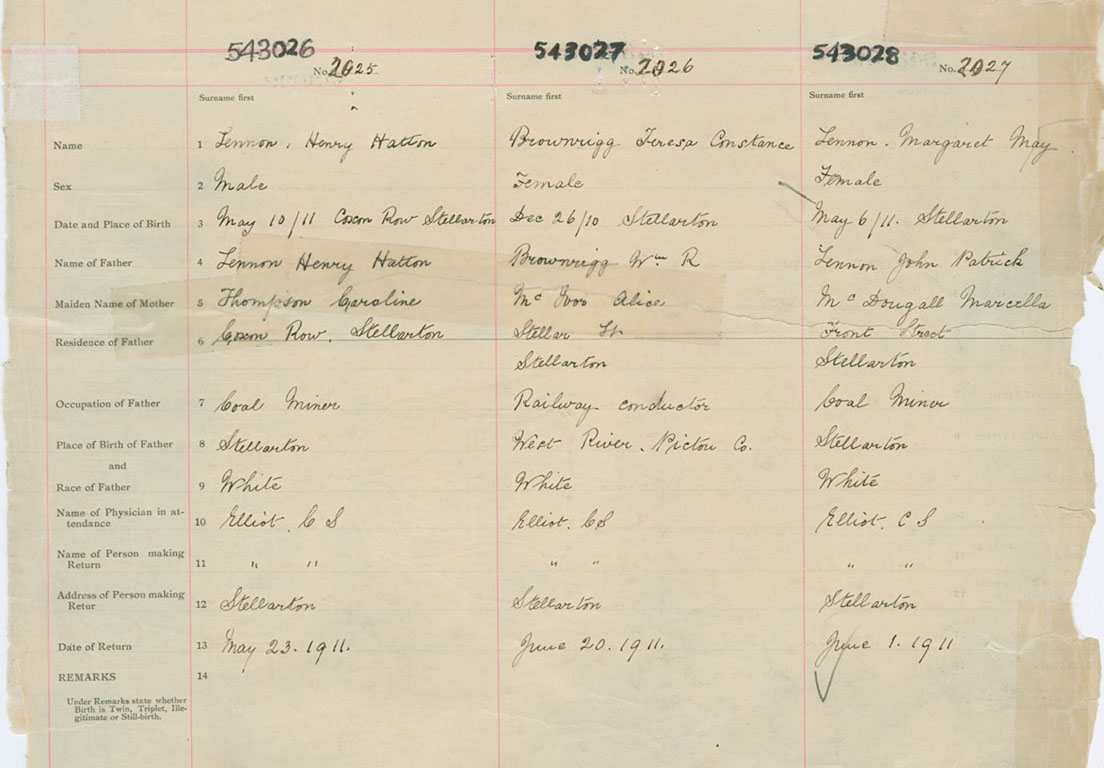 543026 543027 543028
No. 2025 No. 2026 No. 2027
Surname first Surname first Surname first
Name 1 Lennon, Henry Hatton Brownrigg Teresa Constance Lennon. Margaret May
Sex 2 Male Female Female
Date and Place of Birth 3 May 10/11 Coxon Row Stellarton Dec 26/10 Stellarton May 6/11. Stellarton
Name of Father 4 Lennon Henry Hatton Brownrigg Wm R Lennon John Patrick
Maiden Name of Mother 5 Thompson Caroline Mc Ivor Alice Mc Dougall Marcella
Residence of Father 6 Coxon Row, Stellarton Stellar St Front Street
Stellarton Stellarton
Occupation of Father 7 Coal Miner Railway conductor Coal Miner
Place of Birth of Father 8 Stellarton West River, Pictou Co. Stellarton
and
Race of Father 9 White White White
Name of Physician in at-
tendance 10 Elliot, C S Elliot. C S Elliot. C S
Name of Person making
Return 11 " " " " " "
Address of Person making
Retur 12 Stellarton Stellarton Stellarton
Date of Return 13 May 23. 1911. June 20. 1911. June 1. 1911
REMARKS 14
Under Remarks state whether
Birth is Twin, Triplet, Ille-
gitimate or Still-birth.